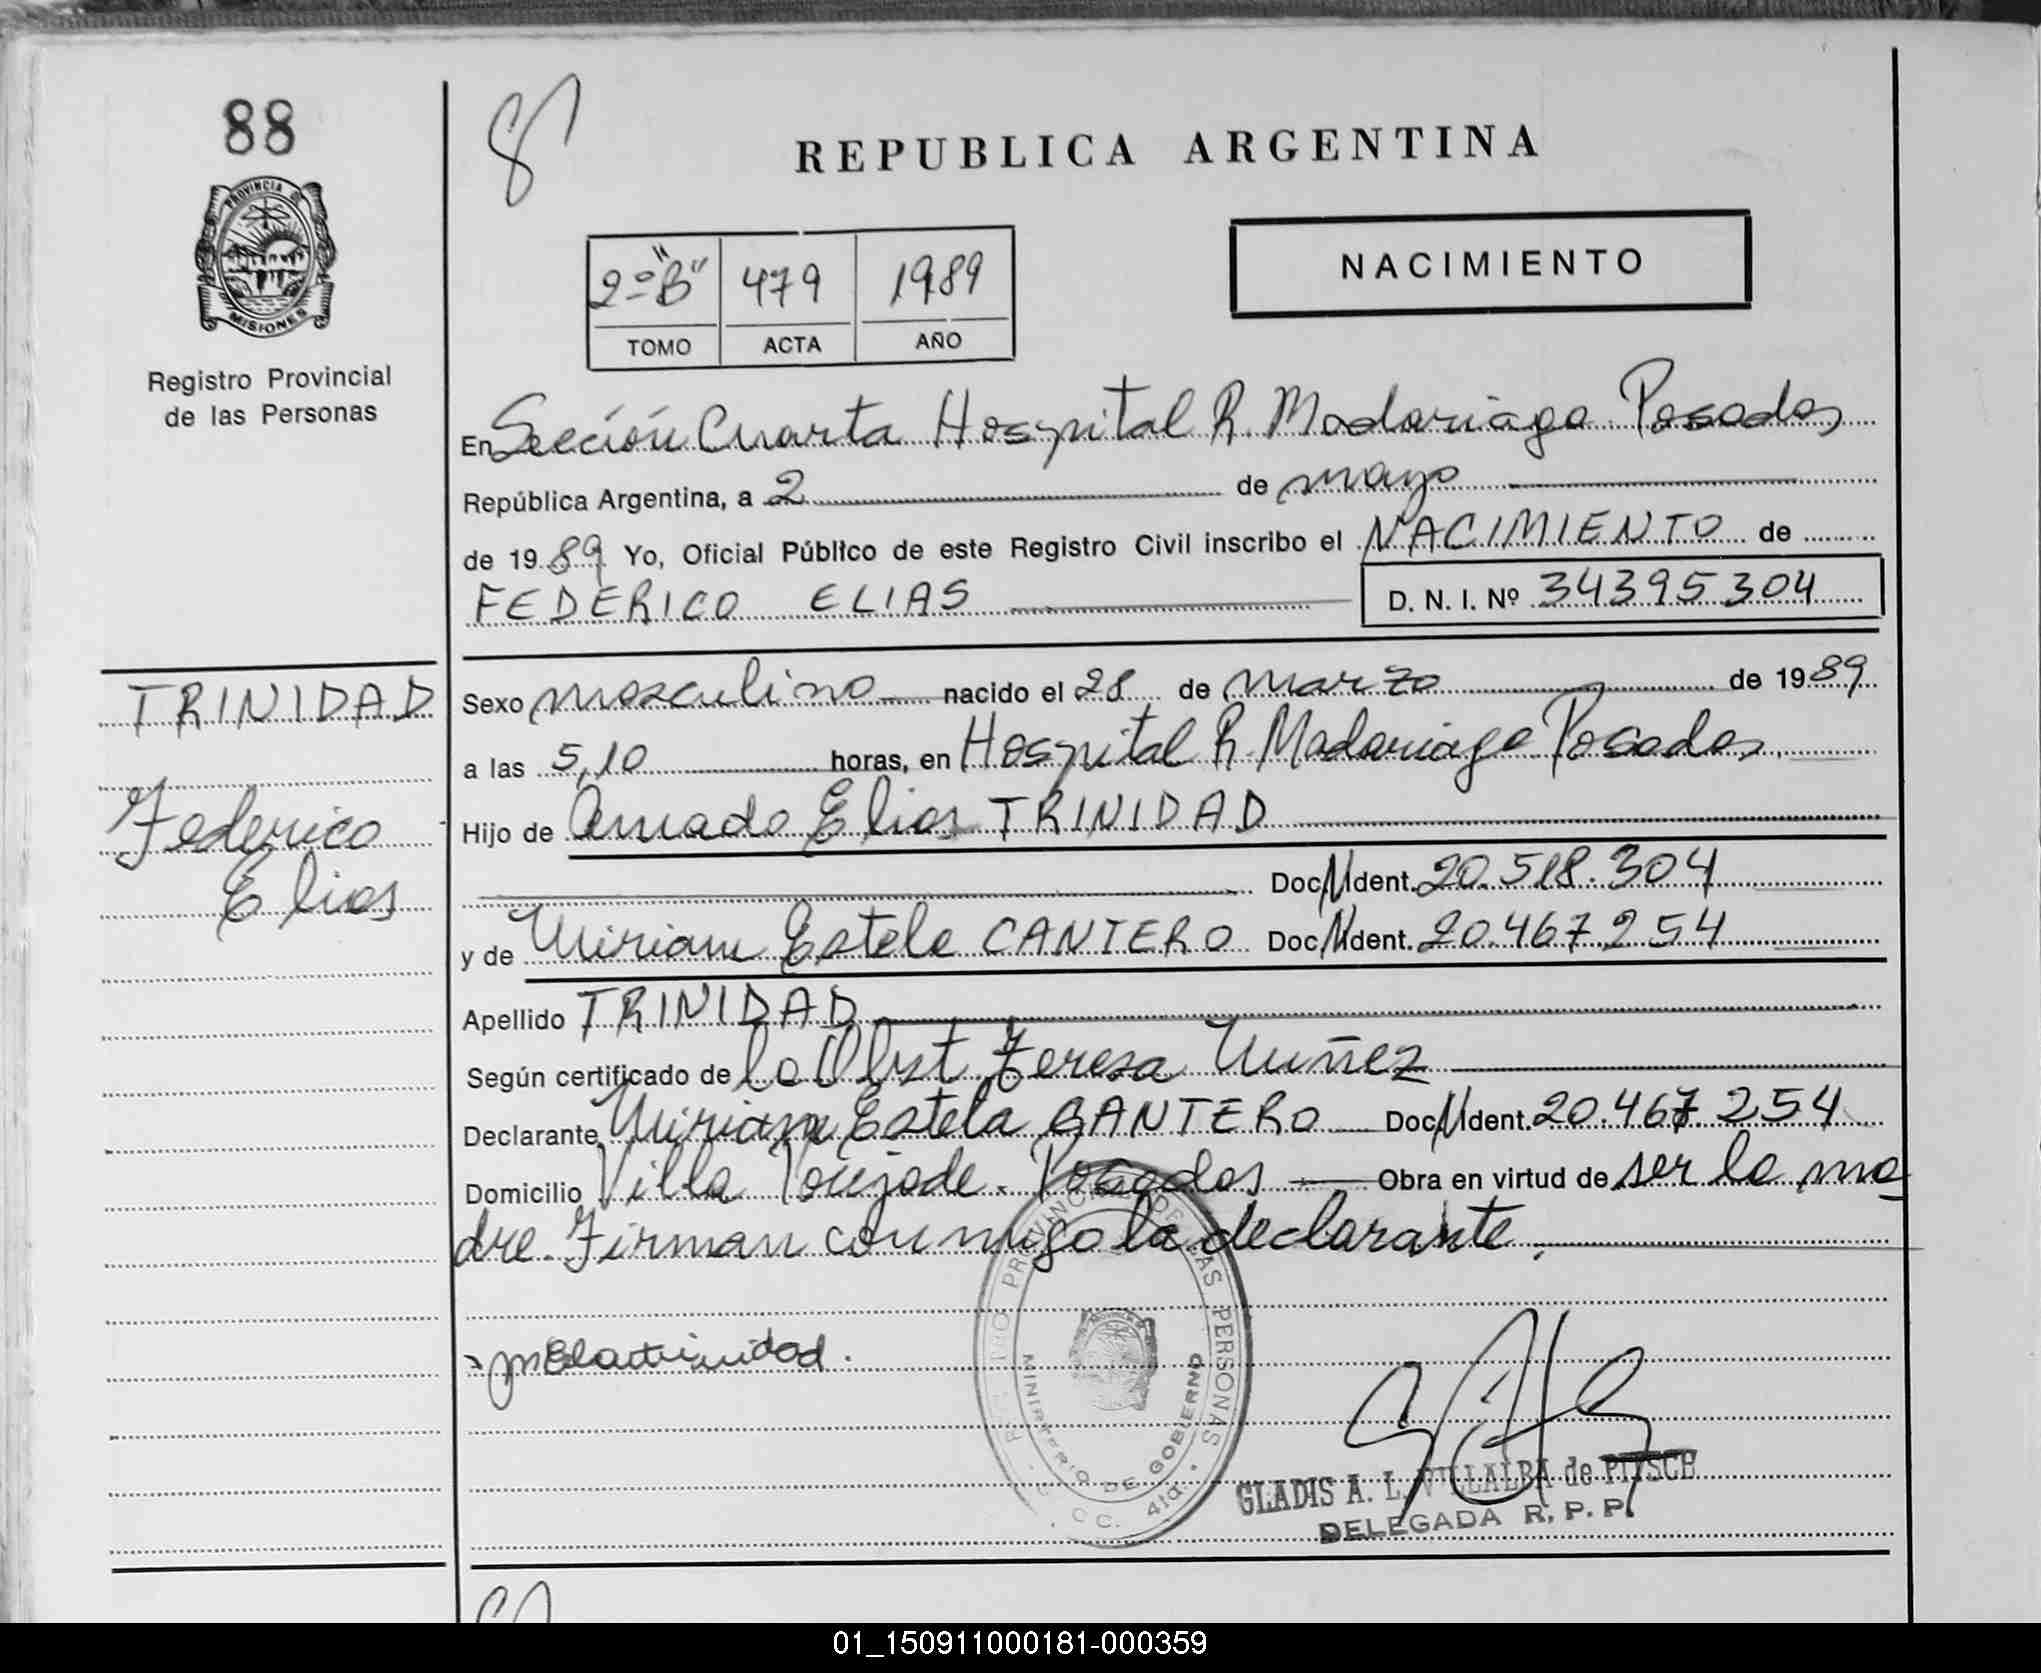 88
REPUBLICA ARGENTINA
PROVINCIA DE
MISIONES
Registro Provincial
de las Personas
NACIMIENTO
2º "B" 479 1989
TOMO ACTA AÑO
En Sección Cuarta Hospital R. Madariaga Posadas
República Argentina, a 2 de mayo
de 1989 Yo, Oficial Público de este Registro Civil inscribo el NACIMIENTO de
FEDERICO ELIAS D. N. I. Nº 34395304
TRINIDAD
Federico
Elias
Sexo masculino nacido el 28 de marzo de 1989
a las 5,10 horas, en Hospital R. Madariaga Posadas.
Hijo de Amado Elias TRINIDAD
Doc. N Ident. 20.518.304
y de Miriam Estela CANTERO Doc. N Ident. 20.467.254
Apellido TRINIDAD
Según certificado de la Obst. Teresa Nuñez
Declarante Miriam Estela CANTERO Doc. N Ident. 20.467.254
Domicilio Villa Posadas Obra en virtud de ser la ma
dre. Firman conmigo la declarante.
PROVINCIAL DE LAS PERSONAS
MINISTERIO DE GOBIERNO
GLADIS A. L. VILLALBA de
DELEGADA R. P. P.
01_150911000181-000359